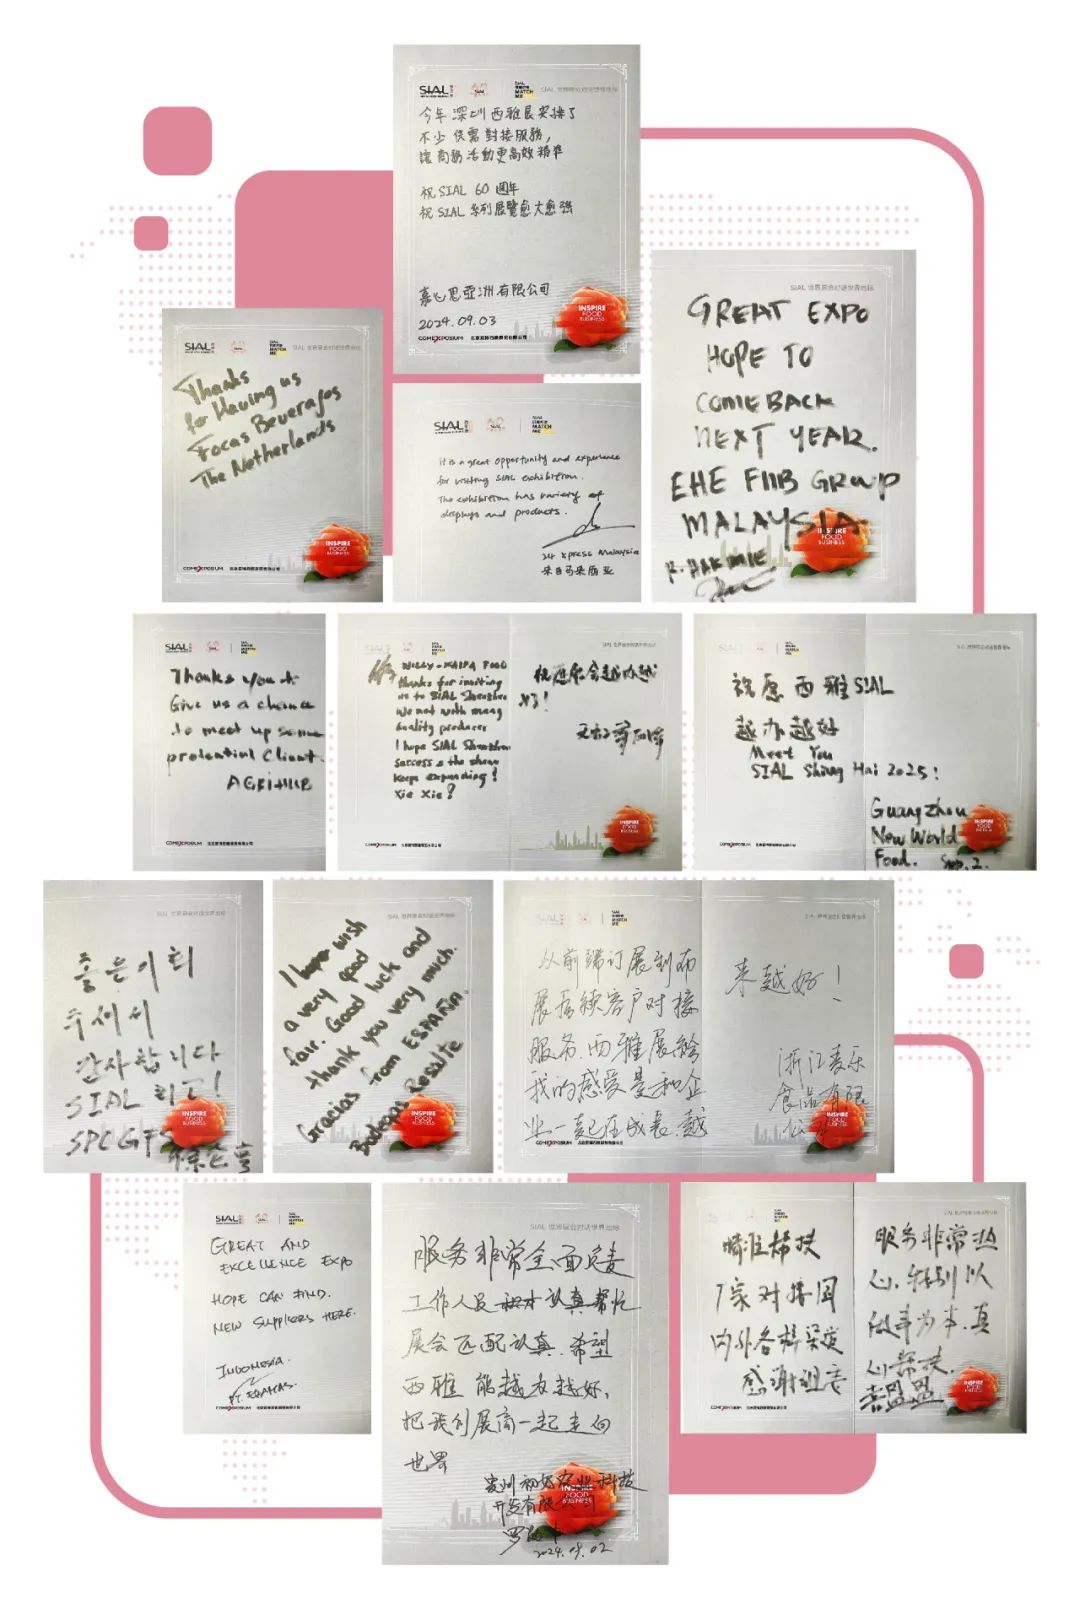 SIAL
SIAL 世界展会对话世界地标
今年深圳西雅展安排了
不少供需對接服務，
讓商務活動更高效精準
祝 SIAL 60 週年
祝 SIAL 系列展覽愈大愈強
亞洲有限公司
2024.09.03
INSPIRE
FOOD
BUSINESS
COMEXPOSIUM
SIAL 世界展会对话世界地标
GREAT EXPO
HOPE TO
COME BACK
NEXT YEAR.
EHE FNB GROUP
MALAYSIA
INSPIRE
FOOD
BUSINESS
SIAL
MATCH
ME
SIAL 世界展会对话世界地标
Thanks
for Having us
Focas Beverages
The Netherlands
INSPIRE
FOOD
BUSINESS
COMEXPOSIUM
SIAL
MATCH
ME
It is a great opportunity and experience
for visiting SIAL exhibition.
The exhibition has variety of
displays and products.
24 Xpress Malaysia
来自马来西亚
SIAL
Thanks you to
Give us a chance
to meet up some
protential Client.
AGRIHUB
COMEXPOSIUM
SIAL 世界展会对话世界地标
WILLY - KAIPA FOOD
thanks for inviting
us to SIAL Shenzhen
We met with many
quality producer
I hope SIAL Shenzhen
Success & the show
keep expanding!
Xie Xie!
祝愿展会越办越
好！
INSPIRE
FOOD
BUSINESS
COMEXPOSIUM
祝愿西雅SIAL
越办越好
Meet You
SIAL Shang Hai 2025!
Guangzhou
New World
Food. Sep. 2.
INSPIRE
FOOD
COMEXPOSIUM
좋은 기회
주셔서
감사합니다
SIAL 최고!
SPC GFS
INSPIRE
FOOD
BUSINESS
I hope wish
a very good
fair. Good luck and
thank you very much.
from ESPAÑA.
Gracias
INSPIRE
FOOD
BUSINESS
从前端订展到布
展后续客户对接
服务，西雅展给
我的感受是和企
业一起在成长，越
来越好！
浙江麦乐
食品有限
公司
COMEXPOSIUM
SIAL
GREAT AND
EXCELLENCE EXPO
HOPE CAN FIND.
NEW SUPPLIERS HERE.
INDONESIA.
COMEXPOSIUM
SIAL 世界展会对话世界地标
服务非常全面负责
工作人员 认真帮忙
展会匹配认真，希望
西雅能越办越好，
把我们展商一起走向
世界
贵州初好农业科技
开发有限公司
2024.09.02
INSPIRE
FOOD
BUSINESS
精准帮扶
厂家对接国
内外各种渠道
感谢组委
服务非常热
心，特别以
做事为本，真
心帮扶.
INSPIRE
COMEXPOSIUM